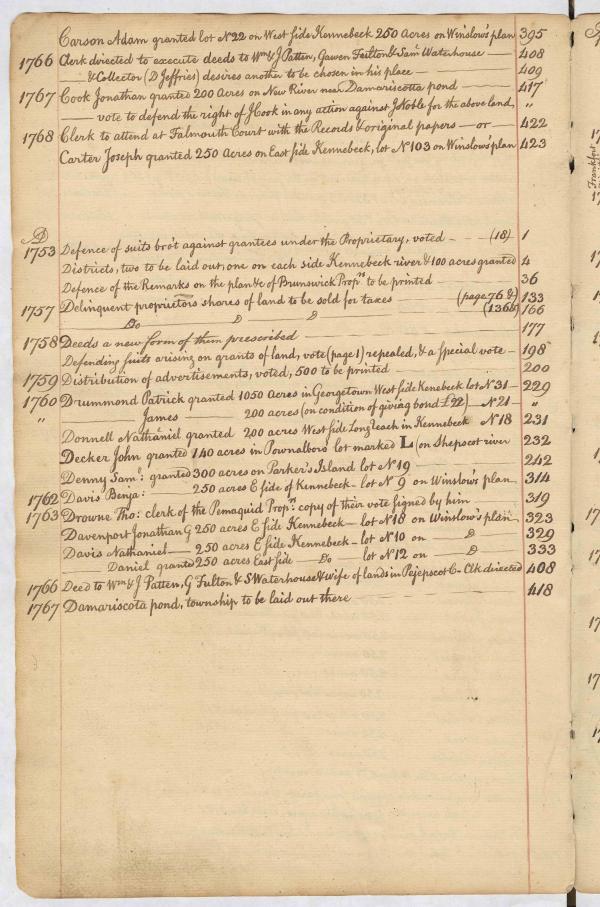 Carson Adam granted lot N22 on West side Kennebeck 250 Acres on Winslow's plan 395
1766 Clerk directed to execute deeds to Wm & J Patten, Gawen Fulton & Saml Waterhouse — 408
— & Collector (D Jeffries) desires another to be chosen in his place — 409
1767 Cook Jonathan granted 200 Acres on New River near Damariscotta pond — 417
— vote to defend the right of J Cook in any action against J Noble for the above land, "
1768 Clerk to attend at Falmouth Court with the Records & original papers — or — 422
Carter Joseph granted 250 Acres on East side Kennebeck, lot N103 on Winslow's plan 423
D
1753 Defence of suits bro't against grantees under the Proprietary, voted — (18) 1
Districts, two to be laid out, one on each side Kennebeck river & 100 acres granted 4
Defence of the Remarks on the plan &c of Brunswick Proprs to be printed — 36
1757 Delinquent proprietors shares of land to be sold for taxes — (page 76 &) 133
Do D D (136b) 166
1758 Deeds a new form of them prescribed — 177
Defending suits arising on grants of land, vote (page 1) repealed, & a special vote — 198
1759 Distribution of advertisements, voted, 500 to be printed — 200
1760 Drummond Patrick granted 1050 Acres in Georgetown West side Kenebeck lot N31 — 229
" James — 200 acres (on condition of giving bond £22) — N21 — "
Donnell Nathaniel granted 200 acres West side Long reach in Kennebeck N18 231
Decker John granted 140 acres in Pownalboro' lot marked L (on Shepscot river 232
Denny Saml: granted 300 acres on Parker's Island lot N19 — 242
1762 Davis Benja: — 250 acres E side of Kennebeck — lot N 9 on Winslow's plan 314
1763 Drowne Tho: clerk of the Pemaquid Proprs copy of their vote signed by him — 319
Davenport Jonathan G 250 acres E side Kennebeck — lot N18 on Winslow's plan — 323
Davis Nathaniel — 250 acres E side Kennebeck — lot N10 on — D 329
— Daniel granted 250 acres East side — Do lot N12 on — D 333
1766 Deed to Wm & J Patten, G Fulton & S Waterhouse & wife of lands in Pejepscot Co — Clk directed 408
1767 Damariscota pond, township to be laid out there — 418
Frankfort